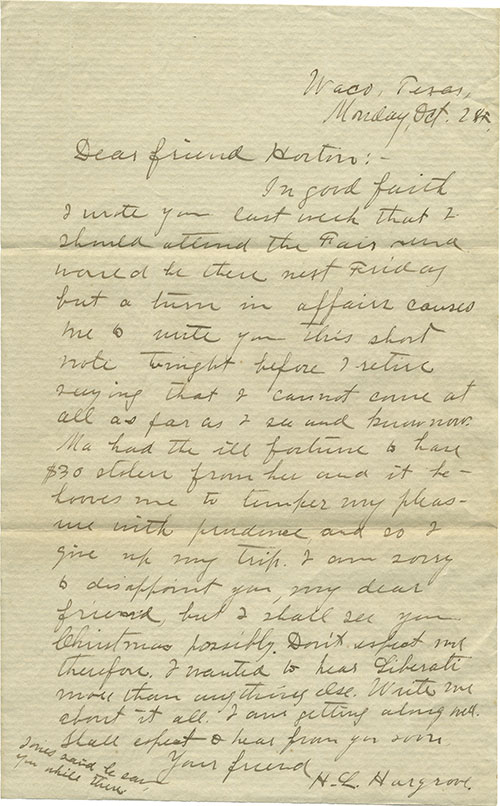 Waco, Texas,
Monday, Oct. 28.
Dear friend Horton:-
In good faith
I wrote you last week that I
should attend the Fair and
would be there next Friday
but a turn in affairs causes
me to write you this short
note tonight before I retire
saying that I cannot come at
all as far as I see and know now.
Ma had the ill fortune to have
$30 stolen from her and it be-
hooves me to temper my pleas-
ure with prudence and so I
give up my trip. I am sorry
to disappoint you, my dear
friend, but I shall see you
Christmas possibly. Don't expect me
therefore. I wanted to hear Liberati
more than anything else. Write me
about it all. I am getting along well.
Shall expect to hear from you soon.
Your friend
H. L. Hargrove.
said he saw
you while there